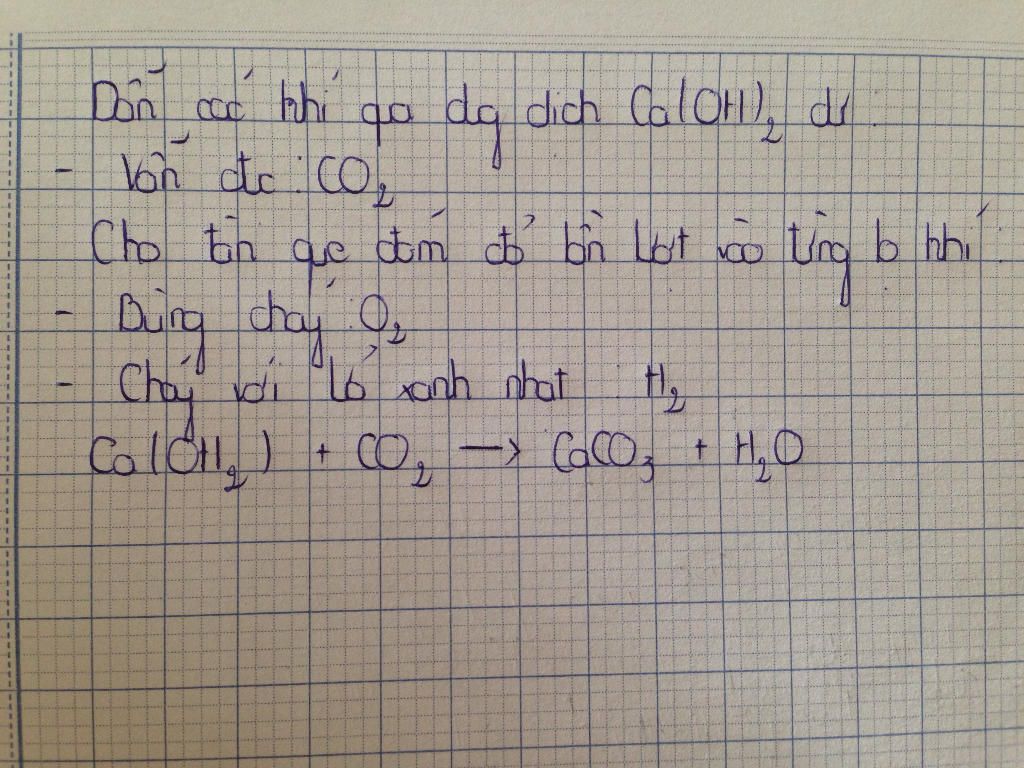 Dẫn các khí qa dg dịch Ca(OH)2 dư :
- Vẩn đục : CO2
Cho tàn que đóm đỏ lần lượt vào từng lọ khí :
- Bùng cháy : O2
- Cháy với lửa xanh nhạt : H2
Ca(OH2) + CO2 → CaCO3 + H2O